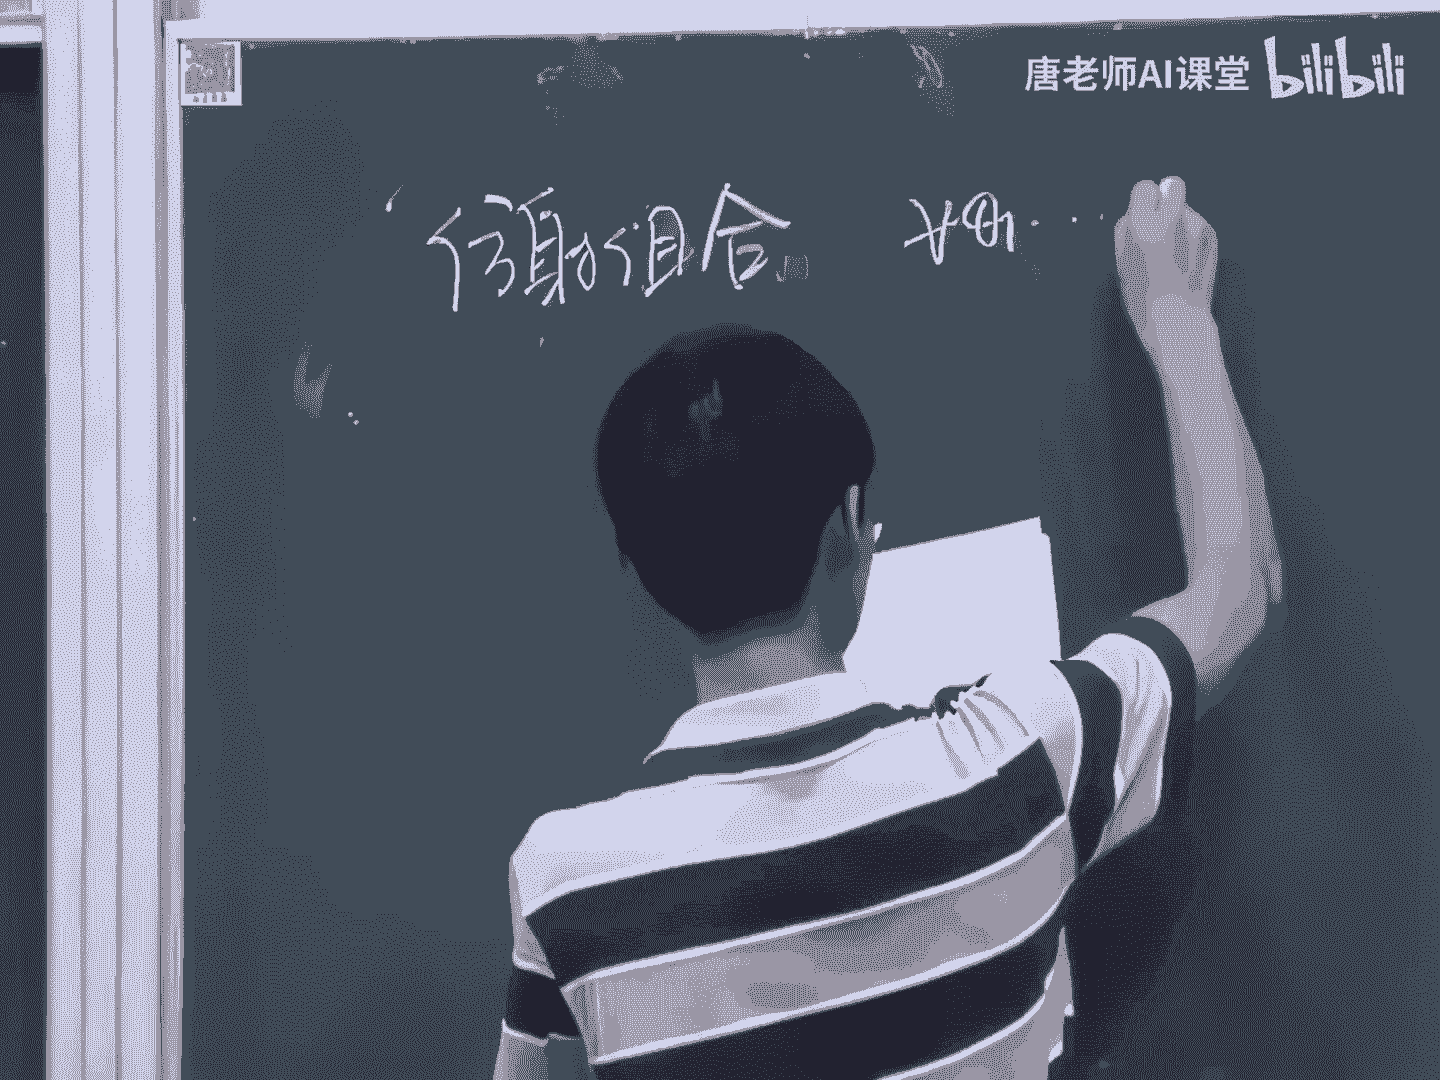 唐老师AI课堂 bilibili
仿射组合 ∀θ₁ · · ·